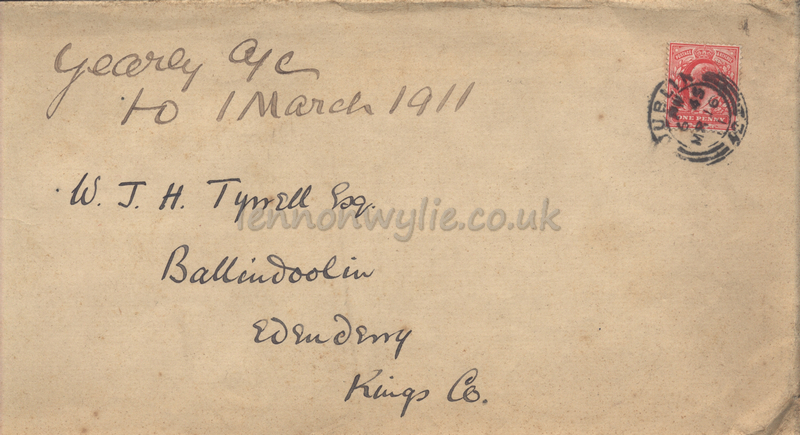 Yearly a/c
to 1 March 1911
W. J. H. Tyrrell Esq.
Ballindoolin
Edenderry
Kings Co.
lennonwylie.co.uk
DUBLIN
ONE PENNY